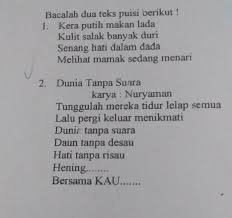 Bacalah dua teks puisi berikut !
1. Kera putih makan lada
Kulit salak banyak duri
Senang hati dalam dada
Melihat mamak sedang menari
2. Dunia Tanpa Suara
karya : Nuryaman
Tunggulah mereka tidur lelap semua
Lalu pergi keluar menikmati
Dunia tanpa suara
Daun tanpa desau
Hati tanpa risau
Hening........
Bersama KAU.......